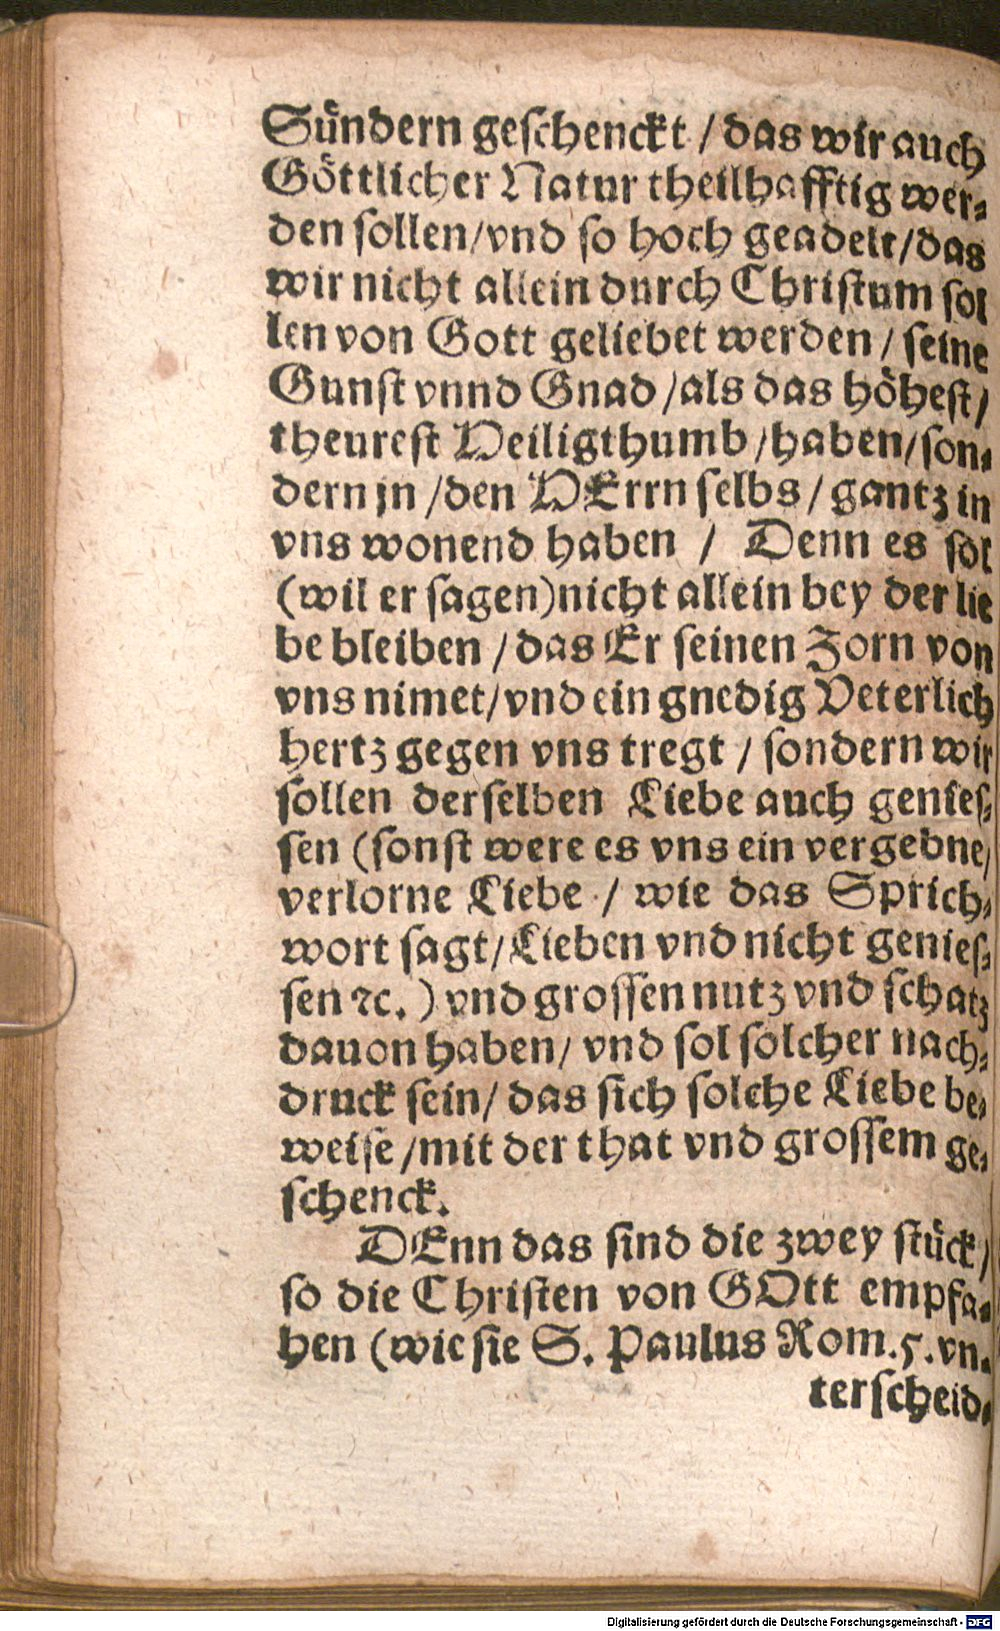 Sündern geschenckt / das wir auch
Göttlicher Natur theilhafftig wer-
den sollen/vnd so hoch geadelt/das
wir nicht allein durch Christum sol
len von Gott geliebet werden / seine
Gunst vnnd Gnad /als das höhest/
theurest Heiligthumb /haben/son-
dern jn /den HErrn selbs / gantz in
vns wonend haben / Denn es sol
(wil er sagen)nicht allein bey der lie
be bleiben /das Er seinen Zorn von
vns nimet/vnd ein gnedig Veterlich
hertz gegen vns tregt / sondern wir
sollen derselben Liebe auch genies-
sen (sonst were es vns ein vergebne/
verlorne Liebe / wie das Sprich-
wort sagt/Lieben vnd nicht genies-
sen ꝛc. ) vnd grossen nutz vnd schatz
dauon haben/ vnd sol solcher nach-
druck sein/ das sich solche Liebe be-
weise /mit der that vnd grossem ge-
schenck.
DEnn das sind die zwey stück /
so die Christen von GOtt empfa-
hen (wie sie S. Paulus Rom.5.vn-
terscheid-
Digitalisierung gefördert durch die Deutsche Forschungsgemeinschaft - DFG